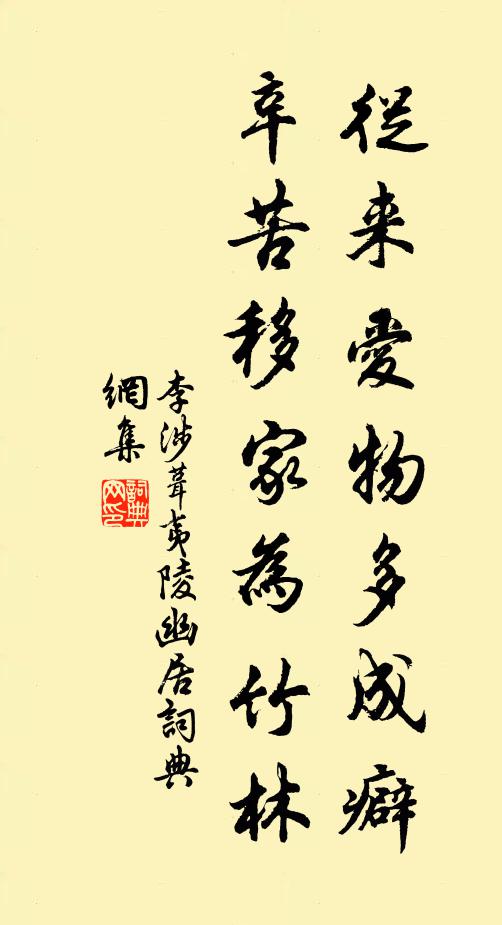 從来愛物多成癖
辛苦移家為竹林
李涉葺夷陵幽居詞典
網集
詞典
网印